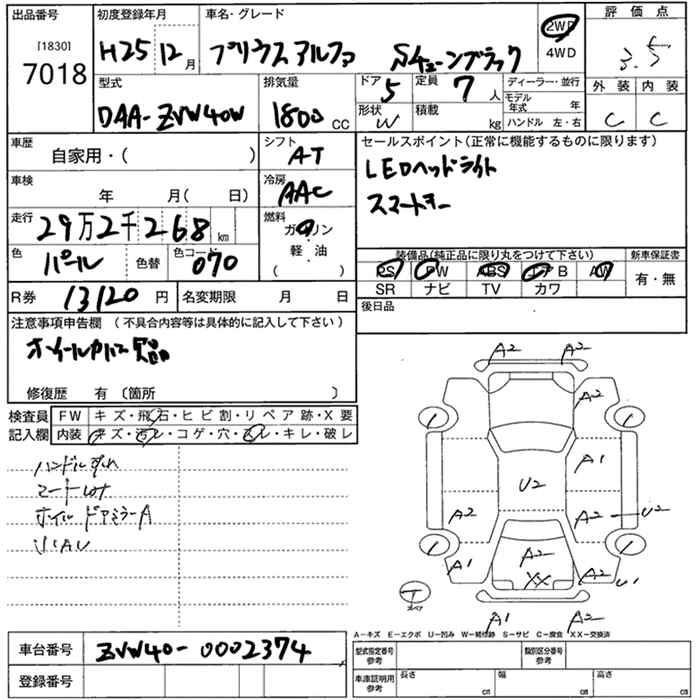 出品番号 初度登録年月 車名・グレード 2WD 評価点
[1830] H25 12月 プリウスアルファ Sチューンブラック 4WD 3.5
7018
型式 排気量 ドア 5 定員 7人 ディーラー・並行 外装 内装
DAA-ZVW40W 1800cc 形状 W 積載 kg モデル年式 年 C C
ハンドル 左・右
車歴 シフト セールスポイント(正常に機能するものに限ります)
自家用・( ) AT LEDヘッドライト
車検 冷房 スマートキー
年 月( 日) AAC
走行 燃料
29万2千268km ガソリン
軽・油
( )
色 パール 色替 色コード 070
装備品(純正品に限り丸をつけて下さい) 新車保証書
PS PW ABS エアB AW 有・無
SR ナビ TV カワ
R券 13120円 名変期限 月 日 後日品
注意事項申告欄 (不具合内容等は具体的に記入して下さい)
ホイールカバー欠品
修復歴 有 (箇所 )
検査員 FW キズ・飛石・ヒビ割・リペア跡・X要
記入欄 内装 キズ・汚レ・コゲ・穴・スレ・キレ・破レ
ハンドルすれ
シートLot
ホイル ドアミラーA
A2 A2
A2
A1
U2
A2 A2 U2
A2
A1 XX A2 U1
T
スペア
A1 A2
A-キズ E-エクボ U-凹み W-補修跡 S-サビ C-腐食 XX-交換済
車台番号 ZVW40-0002374
登録番号
型式指定番号 参考 類別区分番号 参考
車庫証明用 参考 長さ cm 幅 cm 高さ cm